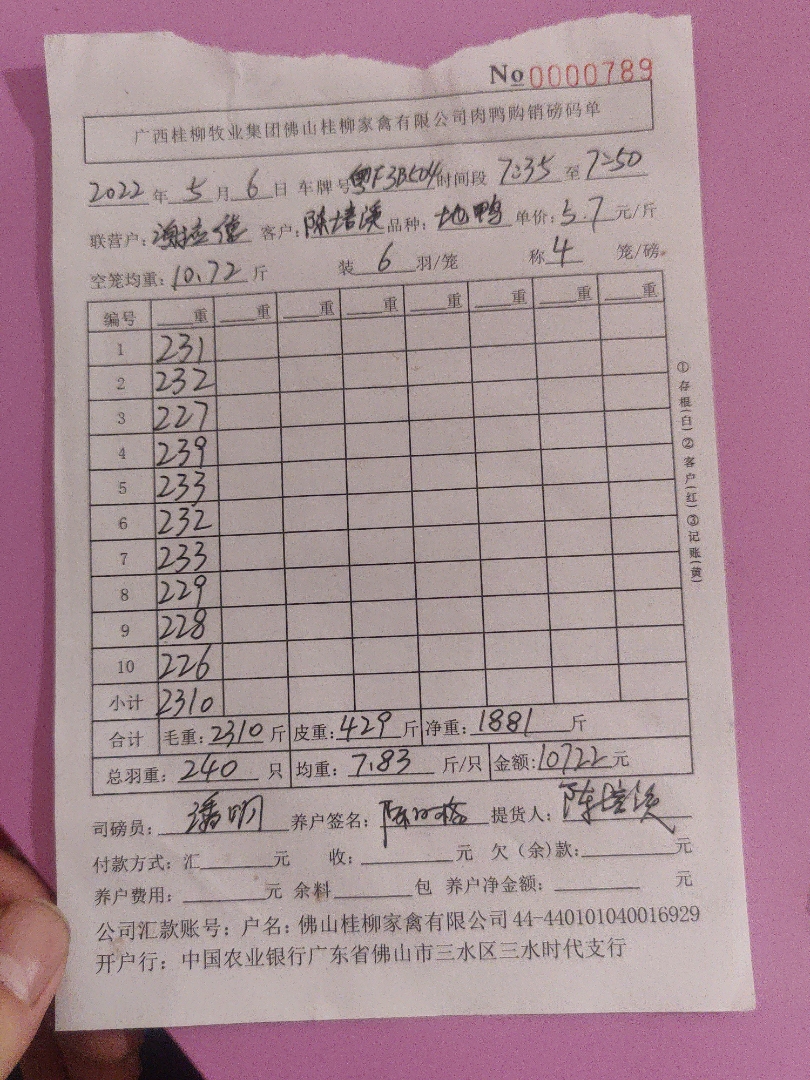 No 0000789
广西桂柳牧业集团佛山桂柳家禽有限公司肉鸭购销磅码单
2022 年 5 月 6 日 车牌号 粤F3B504 时间段 7:35 至 7:50
联营户: 客户: 陈培溪 品种: 地鸭 单价: 5.7 元/斤
空笼均重: 10.72 斤 装 6 羽/笼 称 4 笼/磅。
编号 重 重 重 重 重 重 重 重
1 231
2 232
3 227
4 239
5 233
6 232
7 233
8 229
9 228
10 226
小计 2310
合计 毛重: 2310 斤 皮重: 429 斤 净重: 1881 斤
总羽重: 240 只 均重: 7.83 斤/只 金额: 10722 元
司磅员: 潘明 养户签名: 提货人: 陈培溪
付款方式: 汇 元 收: 元 欠(余)款: 元
养户费用: 元 余料 包 养户净金额: 元
公司汇款账号: 户名: 佛山桂柳家禽有限公司 44-440101040016929
开户行: 中国农业银行广东省佛山市三水区三水时代支行
①存根(白)②客户(红)③记账(黄)